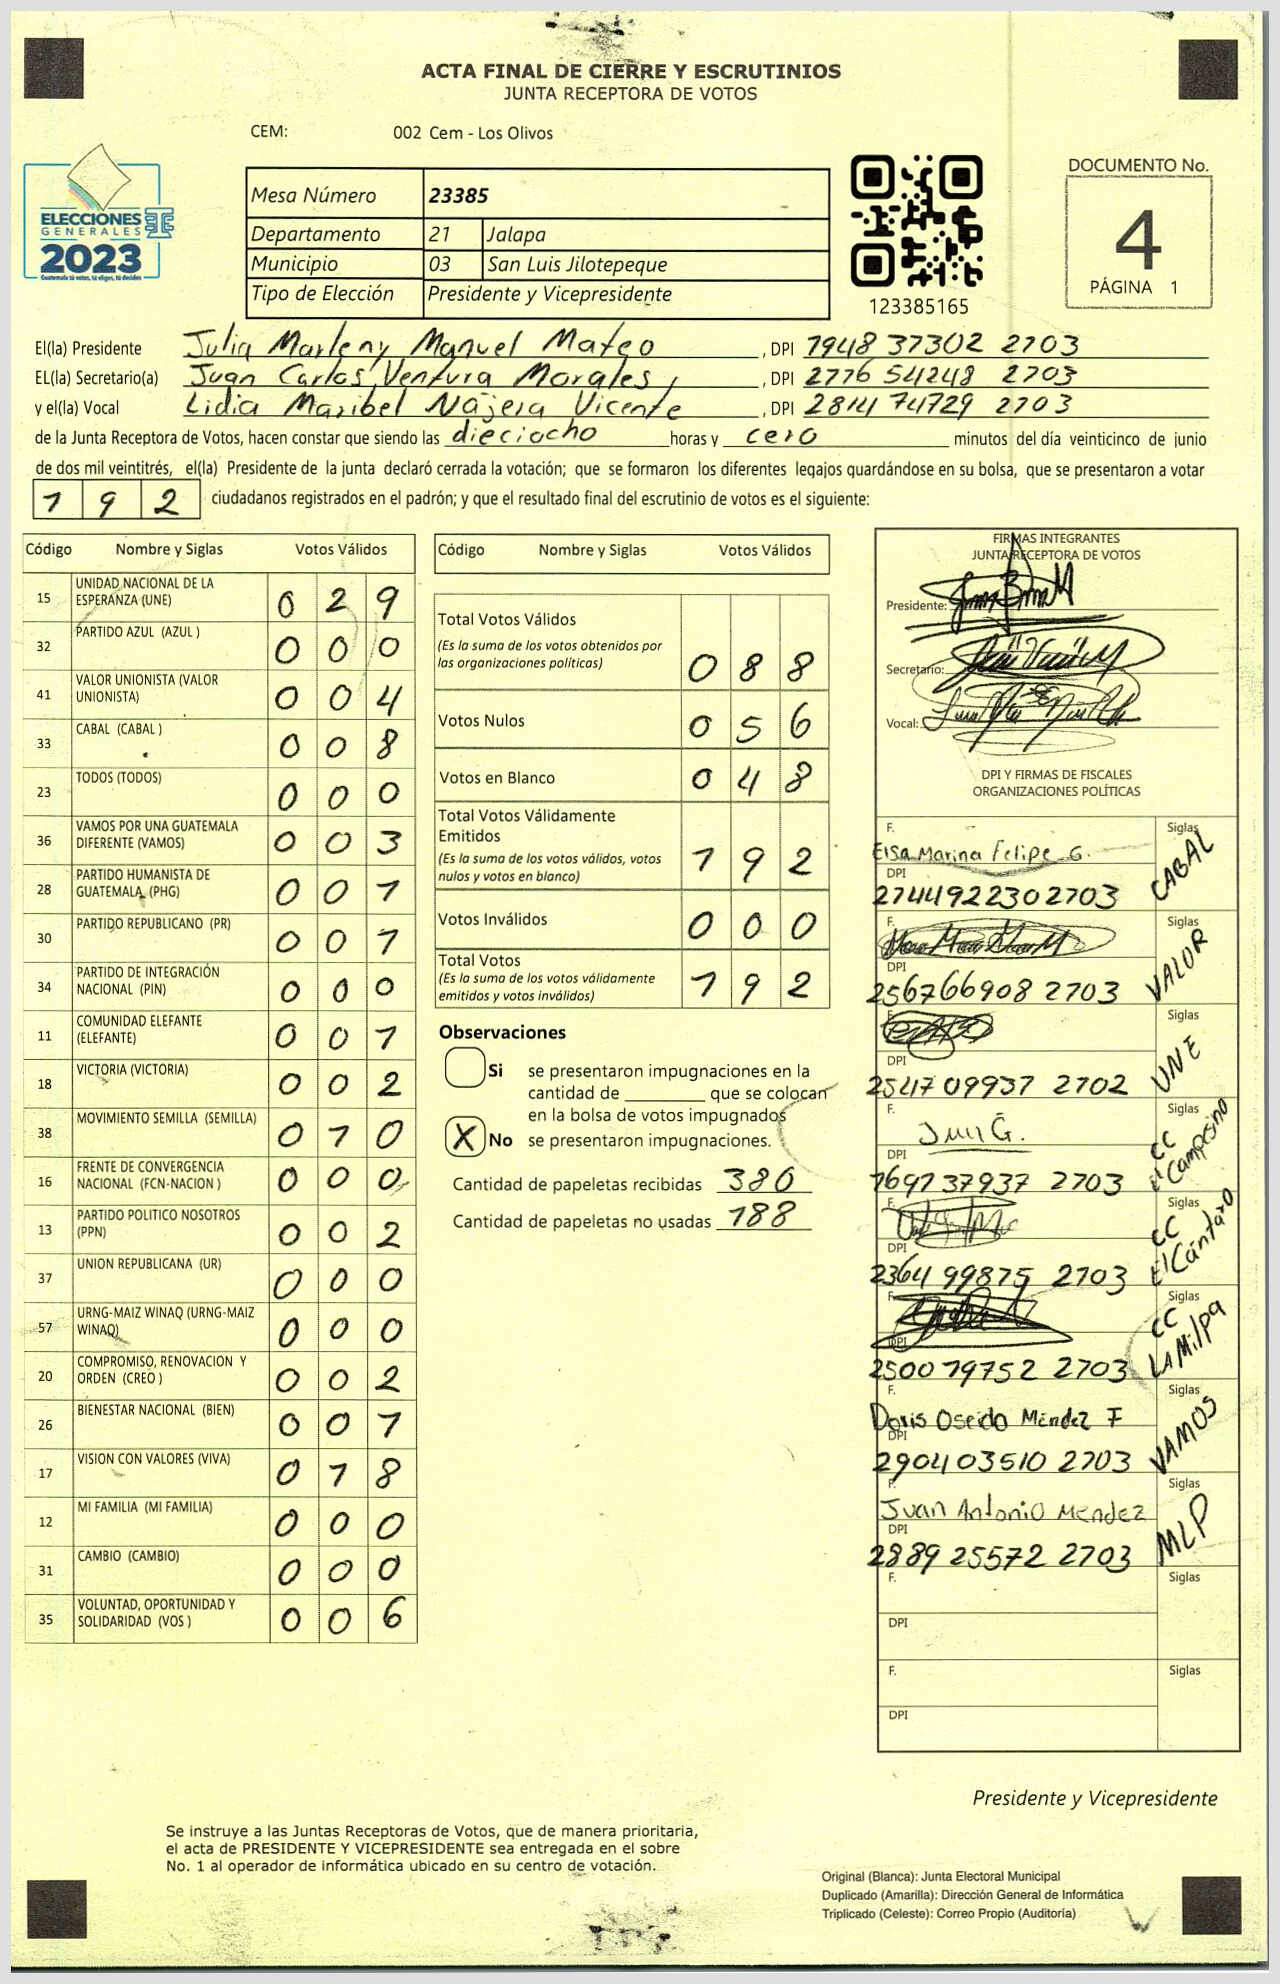 ACTA FINAL DE CIERRE Y ESCRUTINIOS
JUNTA RECEPTORA DE VOTOS
CEM: 002 Cem - Los Olivos
ELECCIONES
GENERALES
2023
Guatemala tú votas, tú eliges, tú decides
Mesa Número 23385
Departamento 21 Jalapa
Municipio 03 San Luis Jilotepeque
Tipo de Elección Presidente y Vicepresidente
123385165
DOCUMENTO No.
4
PÁGINA 1
El(la) Presidente Julia Marleny Manuel Mateo, DPI 1948 37302 2703
EL(la) Secretario(a) Juan Carlos Ventura Morales, DPI 2776 54248 2703
y el(la) Vocal Lidia Maribel Nájera Vicente, DPI 2814 74729 2703
de la Junta Receptora de Votos, hacen constar que siendo las dieciocho horas y cero minutos del día veinticinco de junio
de dos mil veintitrés, el(la) Presidente de la junta declaró cerrada la votación; que se formaron los diferentes legajos quardándose en su bolsa, que se presentaron a votar
192 ciudadanos registrados en el padrón; y que el resultado final del escrutinio de votos es el siguiente:
Código Nombre y Siglas Votos Válidos
15 UNIDAD NACIONAL DE LA ESPERANZA (UNE) 0 2 9
32 PARTIDO AZUL (AZUL ) 0 0 0
41 VALOR UNIONISTA (VALOR UNIONISTA) 0 0 4
33 CABAL (CABAL ) 0 0 8
23 TODOS (TODOS) 0 0 0
36 VAMOS POR UNA GUATEMALA DIFERENTE (VAMOS) 0 0 3
28 PARTIDO HUMANISTA DE GUATEMALA (PHG) 0 0 1
30 PARTIDO REPUBLICANO (PR) 0 0 1
34 PARTIDO DE INTEGRACIÓN NACIONAL (PIN) 0 0 0
11 COMUNIDAD ELEFANTE (ELEFANTE) 0 0 1
18 VICTORIA (VICTORIA) 0 0 2
38 MOVIMIENTO SEMILLA (SEMILLA) 0 1 0
16 FRENTE DE CONVERGENCIA NACIONAL (FCN-NACION ) 0 0 0
13 PARTIDO POLITICO NOSOTROS (PPN) 0 0 2
37 UNION REPUBLICANA (UR) 0 0 0
57 URNG-MAIZ WINAQ (URNG-MAIZ WINAQ) 0 0 0
20 COMPROMISO, RENOVACION Y ORDEN (CREO ) 0 0 2
26 BIENESTAR NACIONAL (BIEN) 0 0 1
17 VISION CON VALORES (VIVA) 0 1 8
12 MI FAMILIA (MI FAMILIA) 0 0 0
31 CAMBIO (CAMBIO) 0 0 0
35 VOLUNTAD, OPORTUNIDAD Y SOLIDARIDAD (VOS ) 0 0 6
Código Nombre y Siglas Votos Válidos
Total Votos Válidos
(Es la suma de los votos obtenidos por
las organizaciones políticas) 0 8 8
Votos Nulos 0 5 6
Votos en Blanco 0 4 8
Total Votos Válidamente
Emitidos
(Es la suma de los votos válidos, votos
nulos y votos en blanco) 1 9 2
Votos Inválidos 0 0 0
Total Votos
(Es la suma de los votos válidamente
emitidos y votos inválidos) 1 9 2
Observaciones
Si se presentaron impugnaciones en la
cantidad de ________ que se colocan
en la bolsa de votos impugnados
X No se presentaron impugnaciones.
Cantidad de papeletas recibidas 380
Cantidad de papeletas no usadas 188
FIRMAS INTEGRANTES
JUNTA RECEPTORA DE VOTOS
Presidente:
Secretario:
Vocal:
DPI Y FIRMAS DE FISCALES
ORGANIZACIONES POLÍTICAS
F. Elsa Marina Felipe G. Siglas CABAL
DPI 2744922302703
F. Siglas VALOR
DPI 256766908 2703
F. Siglas UNE
DPI 2547 09937 2702
F. Juan G. Siglas CC El Campesino
DPI 1697 37937 2703
F. Siglas CC El Cántaro
DPI 2364 99875 2703
F. Siglas CC LA Milpa
DPI 2500 79752 2703
F. Doris Oseida Méndez F Siglas VAMOS
DPI 2904 03510 2703
F. Juan Antonio Mendez Siglas MLP
DPI 2889 25572 2703
F. Siglas
DPI
F. Siglas
DPI
Presidente y Vicepresidente
Se instruye a las Juntas Receptoras de Votos, que de manera prioritaria,
el acta de PRESIDENTE Y VICEPRESIDENTE sea entregada en el sobre
No. 1 al operador de informática ubicado en su centro de votación.
Original (Blanca): Junta Electoral Municipal
Duplicado (Amarilla): Dirección General de Informática
Triplicado (Celeste): Correo Propio (Auditoría)